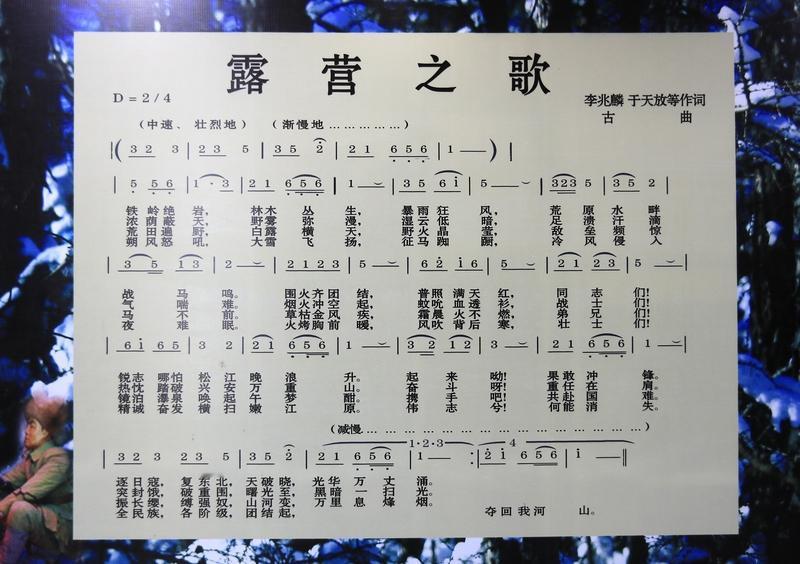 露 营 之 歌
D = 2 / 4
李兆麟 于天放等作词
古 曲
(中速、壮烈地) (渐慢地 ……………)
( 3 2 3 | 2 3 5 | 3 5 2 | 2 1 6 5 6 | 1 — ) |
5 5 6 | 1 · 3 | 2 1 6 5 6 | 1 — | 3 5 6 i | 5 — | 3 2 3 5 | 3 5 2 |
铁 岭 绝 岩, 林 木 丛 生, 暴 雨 狂 风, 荒 原 水 畔
浓 荫 蔽 天, 野 雾 弥 漫, 湿 云 低 暗, 足 溃 汗 滴
荒 田 遍 野, 白 露 横 天, 野 火 晶 莹, 敌 垒 频 惊
朔 风 怒 吼, 大 雪 飞 扬, 征 马 踟 蹰, 冷 风 侵 入
| 3 5 1 3 | 2 — | 2 1 2 3 | 5 — | 6 2 i 6 | 5 — | 2 1 2 3 | 5 — |
战 马 鸣。 围 火 齐 团 结, 普 照 满 天 红, 同 志 们!
气 喘 难。 烟 火 冲 空 起, 蚊 吮 血 透 衫, 战 士 们!
马 不 前。 草 枯 金 风 疾, 霜 晨 火 不 燃, 弟 兄 们!
夜 难 眠。 火 烤 胸 前 暖, 风 吹 背 后 寒, 壮 士 们!
| 6 i 6 5 | 2 1 6 5 6 | 1 — | 3 2 1 2 | 3 — | 2 1 6 5 6 | 1 — |
锐 志 哪 怕 松 江 晚 浪 升。 起 来 呦! 果 敢 冲 锋。
热 忱 踏 破 兴 安 万 重 山。 奋 斗 呀! 重 任 在 肩。
镜 泊 瀑 泉 唤 起 午 梦 酣。 携 手 吧! 共 赴 国 难。
精 诚 奋 发 横 扫 嫩 江 原。 伟 志 兮! 何 能 消 失。
(减慢 … … … … … … … … … … … … )
1·2·3 4
| 3 2 3 | 2 3 5 | 3 5 2 | 2 1 6 5 6 | 1 — : | 2 i 6 5 6 | i — ‖
逐 日 寇, 复 东 北, 天 破 晓, 光 华 万 丈 涌。
突 封 锇, 破 重 围, 曙 光 至, 黑 暗 一 扫 光。
振 长 缨, 缚 强 奴, 山 河 变, 万 里 息 烽 烟。
全 民 族, 各 阶 级, 团 结 起, 夺 回 我 河 山。